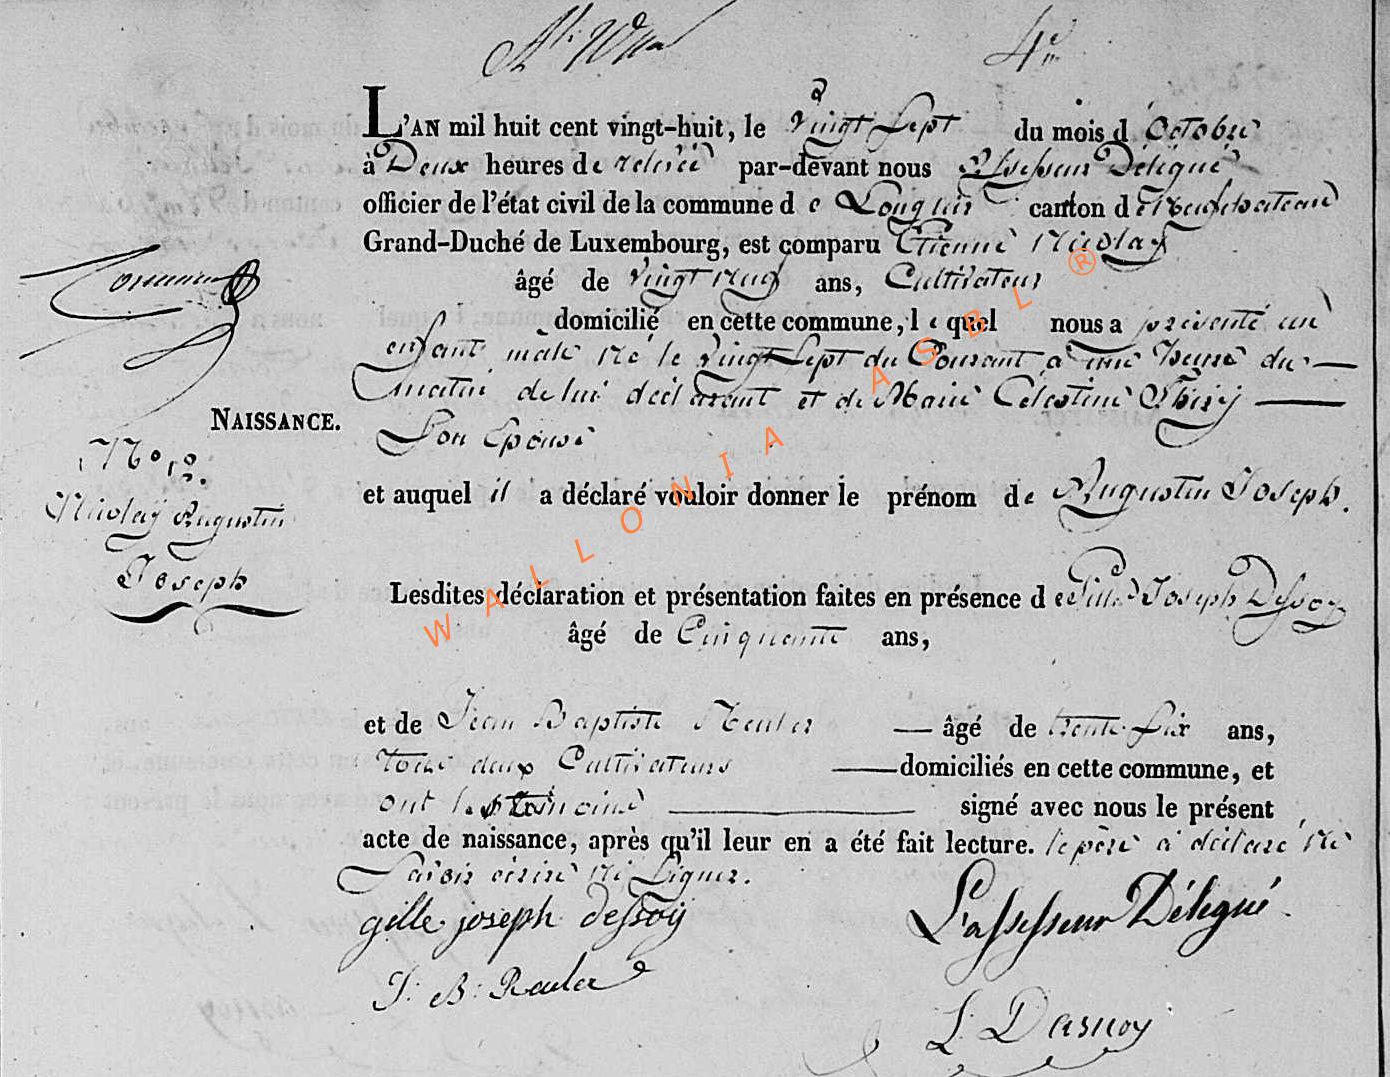 4e
L'AN mil huit cent vingt-huit, le Vingt Sept du mois d'Octobre
à Deux heures de relevée par-devant nous Assesseur Délégué
officier de l'état civil de la commune de Longlier canton de Neufchateau
Grand-Duché de Luxembourg, est comparu Etienne Nicolay
âgé de Vingt neuf ans, Cultivateur
domicilié en cette commune, lequel nous a présenté un
enfant male né le Vingt Sept du Courant à une heure du
matin de lui déclarant et de Marie Celestine Thiry
Son Epouse
NAISSANCE.
et auquel il a déclaré vouloir donner le prénom de Augustin Joseph.
Nicolay Augustin
Joseph
Lesdites déclaration et présentation faites en présence de Gille Joseph Dessoy
âgé de Cinquante ans,
et de Jean Baptiste Reuler âgé de trente six ans,
tous deux Cultivateurs domiciliés en cette commune, et
ont les temoins signé avec nous le présent
acte de naissance, après qu'il leur en a été fait lecture. le père a déclaré ne
Savoir écrire ni Signer.
gille joseph dessoy L'assesseur Délégué
J: B: Reuler
L: Dasnoy
WALLONIA ASBL ®